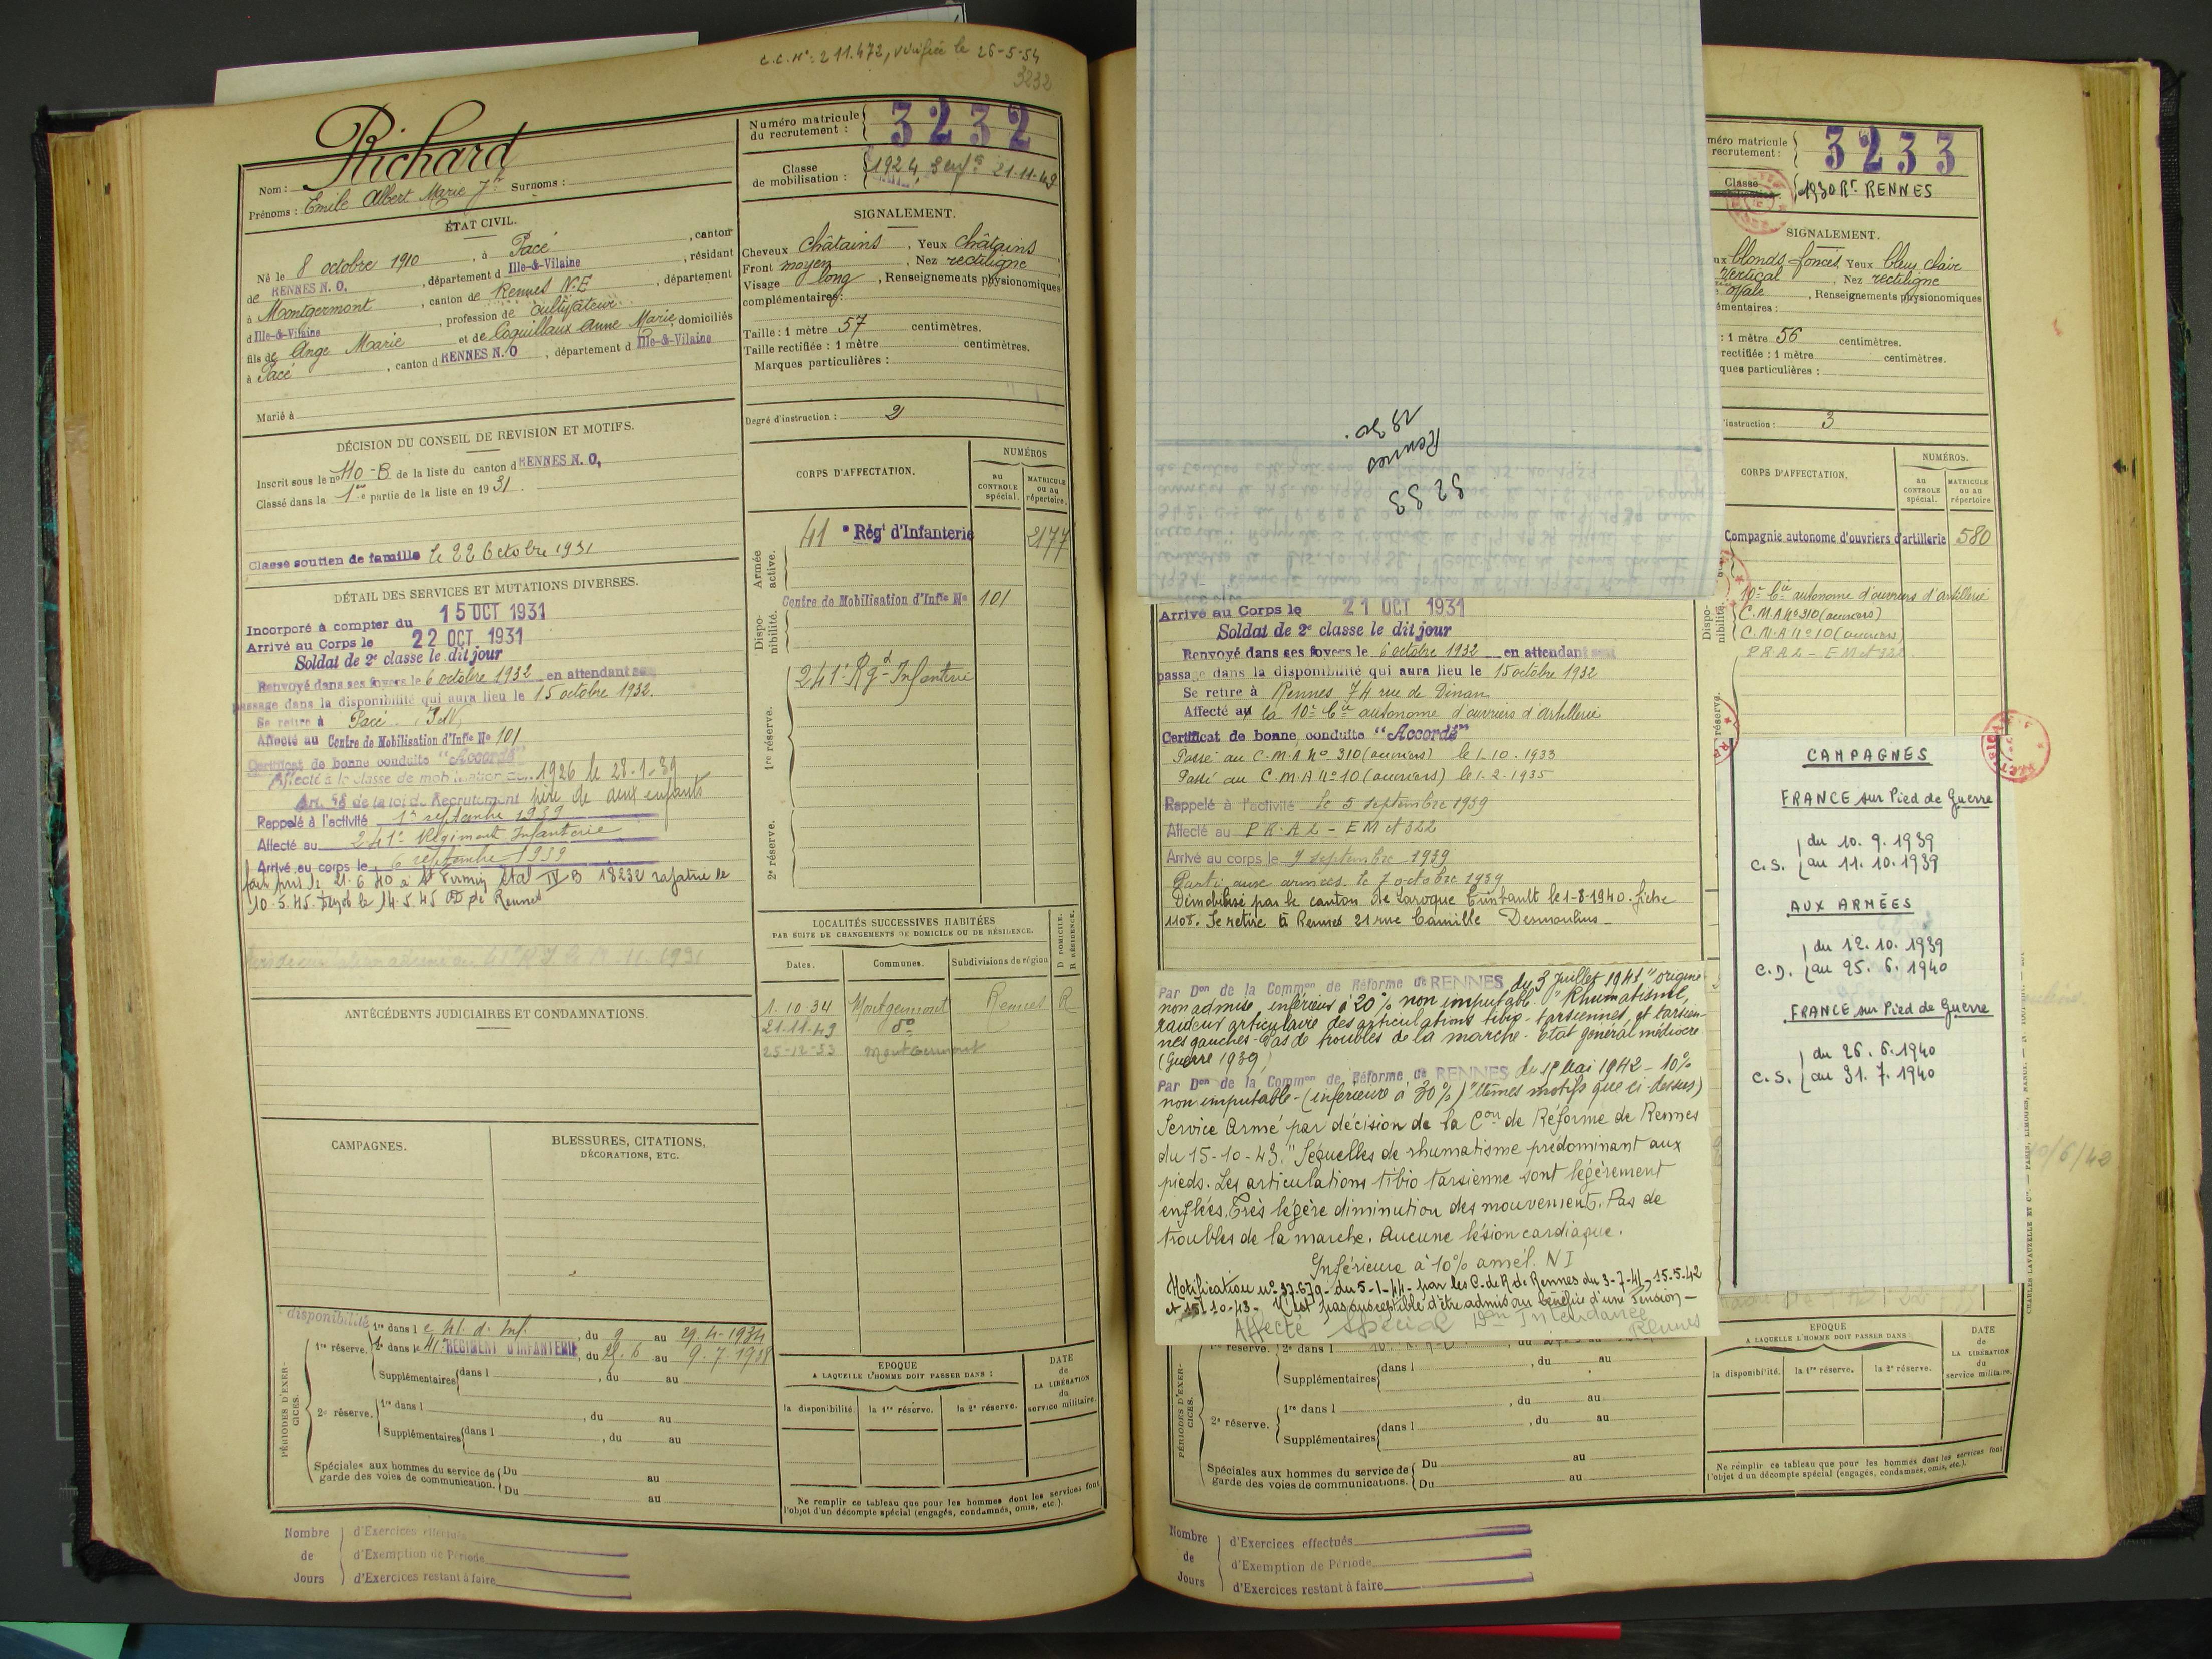 C.C. N°: 211.472, vérifiée le 26-5-54
3232
Nom : Richard
Prénoms : Emile Albert Marie Jh Surnoms :
ÉTAT CIVIL.
Né le 8 octobre 1910, à Pacé, canton
de RENNES N. O., département d Ille-&-Vilaine, résidant
à Montgermont, canton de Rennes N.E, département
d Ille-&-Vilaine, profession de cultivateur
fils de Ange Marie et de Coquillaux Anne Marie, domiciliés
à Pacé, canton d RENNES N. O, département d Ille-&-Vilaine
Marié à
DÉCISION DU CONSEIL DE REVISION ET MOTIFS.
Inscrit sous le n° 110-B de la liste du canton d RENNES N. O,
Classé dans la 1ere partie de la liste en 1931.
Classé soutien de famille le 22 Octobre 1931
DÉTAIL DES SERVICES ET MUTATIONS DIVERSES.
Incorporé à compter du 15 OCT 1931
Arrivé au Corps le 22 OCT 1931
Soldat de 2e classe le dit jour
Renvoyé dans ses foyers le 6 octobre 1932 en attendant son
passage dans la disponibilité qui aura lieu le 15 octobre 1932.
Se retire à Pacé. I&V,
Affecté au Centre de Mobilisation d'Infie No 101
Certificat de bonne conduite "Accordé"
Affecté à la classe de mobilisation de 1926 le 28.1.39
Art. 58 de la loi du Recrutement père de deux enfants
Rappelé à l'activité 1er septembre 1939
Affecté au 241e Régiment Infanterie
Arrivé au corps le 6 septembre 1939
fait pris le 21.6.40 à St Firmin Stal IV B 18232 rapatrié le
10.5.45. le 14.5.45 CD de Rennes
ANTÉCÉDENTS JUDICIAIRES ET CONDAMNATIONS.
CAMPAGNES.
BLESSURES, CITATIONS,
DÉCORATIONS, ETC.
PÉRIODES D'EXERCICES.
disponibilité
1re réserve. 1re dans l e 41. d. Inf., du 9 au 29.4-1934
2e dans le 41e REGIMENT D'INFANTERIE, du 29.6 au 9.7.1938
Supplémentaires dans l , du au
2e réserve. 1re dans l , du au
Supplémentaires dans l , du au
Spéciales aux hommes du service de garde des voies de communication. Du au
Du au
Nombre de Jours
d'Exercices effectués
d'Exemption de Période
d'Exercices restant à faire
Numéro matricule du recrutement : 3232
Classe de mobilisation : 1924 3 enfts 21.11.49
SIGNALEMENT.
Cheveux châtains, Yeux châtains
Front moyen, Nez rectiligne
Visage long, Renseignements physionomiques
complémentaires :
Taille : 1 mètre 57 centimètres.
Taille rectifiée : 1 mètre centimètres.
Marques particulières :
Degré d'instruction : 2
CORPS D'AFFECTATION.
NUMÉROS
au CONTROLE spécial.
MATRICULE ou au répertoire.
Armée active.
41 e Régt d'Infanterie 2177
Disponibilité.
Centre de Mobilisation d'Infie No 101
1re réserve.
241e Rgt d'Infanterie
2e réserve.
LOCALITÉS SUCCESSIVES HABITÉES
PAR SUITE DE CHANGEMENTS DE DOMICILE OU DE RÉSIDENCE.
Dates. Communes. Subdivisions de région D DOMICILE. R RÉSIDENCE.
1-10-34 Montgermont Rennes R
21-11-49 do
25-12-53 Montgermont
EPOQUE
A LAQUELLE L'HOMME DOIT PASSER DANS :
la disponibilité. la 1re réserve. la 2e réserve.
DATE de LA LIBÉRATION du service militaire.
Ne remplir ce tableau que pour les hommes dont les services font
l'objet d'un décompte spécial (engagés, condamnés, omis, etc.).
3233
Rennes
1930.
Arrivé au Corps le 21 OCT 1931
Soldat de 2e classe le dit jour
Renvoyé dans ses foyers le 6 octobre 1932 en attendant son
passage dans la disponibilité qui aura lieu le 15 octobre 1932
Se retire à Rennes 74 rue de Dinan
Affecté au la 10e Cie autonome d'ouvriers d'Artillerie
Certificat de bonne conduite "Accordé"
Passé au C.M.A No 310 (ouvriers) le 1.10.1933
Passé au C.M.A No 10 (ouvriers) le 1-2-1935
Rappelé à l'activité le 5 septembre 1939
Affecté au P.R.A.L - EM et 322
Arrivé au corps le 9 septembre 1939
Parti aux armées le 7 octobre 1939
Démobilisé par le canton de Laroque Timbault le 1-8-1940. fiche
1105. Se retire à Rennes 21 rue Camille Desmoulins
Par Don de la Common de Réforme de RENNES du 3 Juillet 1941 "origine
non admise, inférieur à 20% non imputable "Rhumatisme,
raideur articulaire des articulations tibio-tarsiennes et tarsien-
nes gauches. Pas de troubles de la marche. Etat général médiocre
(Guerre 1939)
Par Don de la Common de Réforme de RENNES du 15 Mai 1942 - 10%
non imputable - (inférieure à 30%) "(mêmes motifs que ci-dessus)
Service Armé par décision de la Con de Réforme de Rennes
du 15-10-43. "Séquelles de rhumatisme prédominant aux
pieds. Les articulations tibio tarsienne sont légèrement
enflées. Très légère diminution des mouvements. Pas de
troubles de la marche. Aucune lésion cardiaque.
Inférieure à 10% amél. NI
Notification no 37.679 - du 5-1-44 - par les C. de R de Rennes du 3-7-41, 15.5.42
et 15-10-43 - N'est pas susceptible d'être admis au bénéfice d'une Pension -
Affecté Spécial Don Intendance
Rennes
1re réserve. 2e dans l
Supplémentaires dans l , du au
2e réserve. 1re dans l , du au
Supplémentaires dans l , du au
PÉRIODES D'EXERCICES.
Spéciales aux hommes du service de garde des voies de communications. Du au
Du au
Nombre de Jours
d'Exercices effectués
d'Exemption de Période
d'Exercices restant à faire
méro matricule recrutement : 3233
Classe 1930 Rt RENNES
SIGNALEMENT.
ux blonds foncés, Yeux bleu clair
Vertical, Nez rectiligne
Ovale, Renseignements physionomiques
émentaires :
: 1 mètre 56 centimètres.
rectifiée : 1 mètre centimètres.
ques particulières :
'instruction : 3
CORPS D'AFFECTATION.
NUMÉROS.
au CONTROLE spécial.
MATRICULE ou au répertoire
Compagnie autonome d'ouvriers d'artillerie 580
Disponibilité.
10e Cie autonome d'ouvriers d'Artillerie
C.M.A No 310 (ouvriers)
C.M.A No 10 (ouvriers)
P.R.A.L - EM et 322
réserve.
CAMPAGNES
FRANCE sur Pied de Guerre
C.S. du 10.9.1939
au 11.10.1939
AUX ARMÉES
C.D. du 12.10.1939
au 25.6.1940
FRANCE sur Pied de Guerre
C.S. du 26.6.1940
au 31.7.1940
10/6/42
CHARLES LAVAUZELLE ET Cie. — PARIS, LIMOGES, NANCY.
EPOQUE
A LAQUELLE L'HOMME DOIT PASSER DANS
la disponibilité. la 1re réserve. la 2e réserve.
DATE de LA LIBÉRATION du service militaire.
Ne remplir ce tableau que pour les hommes dont les services font
l'objet d'un décompte spécial (engagés, condamnés, omis, etc.).